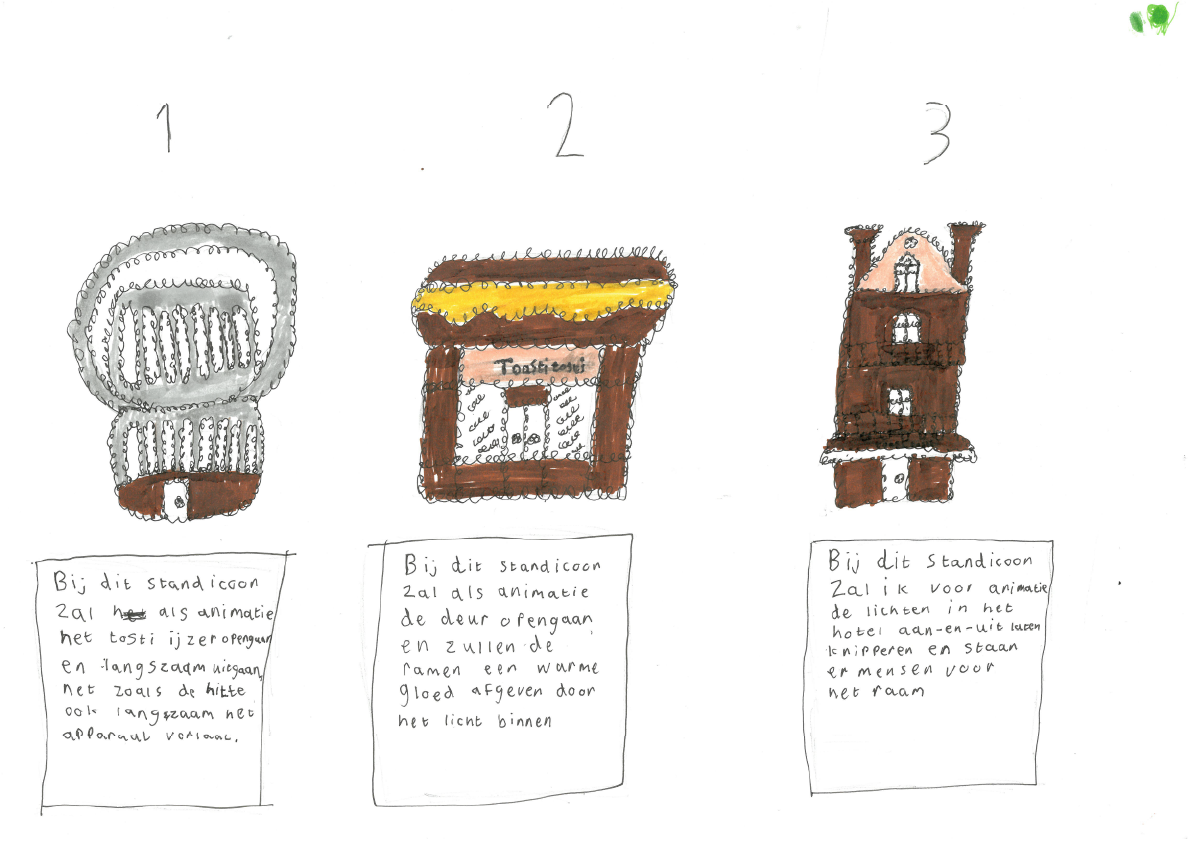 1
2
3
Tosti tosti
Bij dit standicoon
zal als animatie
het tosti ijzer opengaan
en langszaam uitgaan,
net zoals de hitte
ook langszaam het
apparaat verlaat.
Bij dit standicoon
zal als animatie
de deur opengaan
en zullen de
ramen een warme
gloed afgeven door
het licht binnen
Bij dit standicoon
Zal ik voor animatie
de lichten in het
hotel aan-en-uit laten
knipperen en staan
er mensen voor
het raam